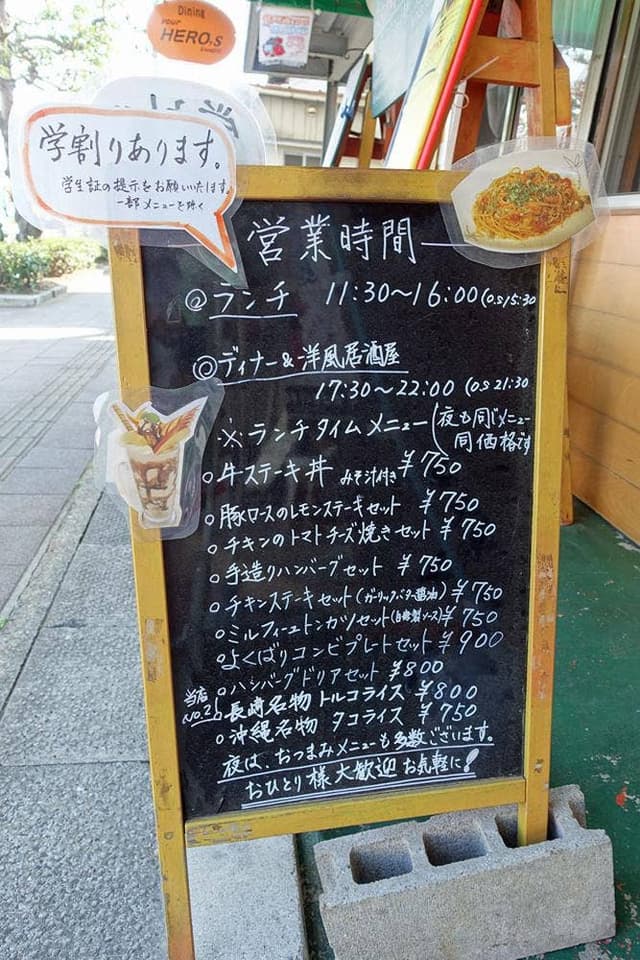 Dining
your
HERO,s
学割りあります。
学生証の提示をお願いいたします
一部メニューを除く
営業時間
◎ランチ 11:30〜16:00(o.s15:30
◎ディナー&洋風居酒屋
17:30〜22:00(o.s21:30
※ランチタイムメニュー(夜も同じメニュー
同価格です
○牛ステーキ丼 みそ汁付き ¥750
○豚ロースのレモンステーキセット ¥750
○チキンのトマトチーズ焼きセット ¥750
○手造りハンバーグセット ¥750
○チキンステーキセット(ガーリックバター醤油) ¥750
○ミルフィーユトンカツセット(自家製ソース) ¥750
○よくばりコンビプレートセット ¥900
○ハンバーグドリアセット ¥800
当店
No.2!
○長崎名物 トルコライス ¥800
○沖縄名物 タコライス ¥750
夜は、おつまみメニューも多数ございます。
おひとり様大歓迎 お気軽に!